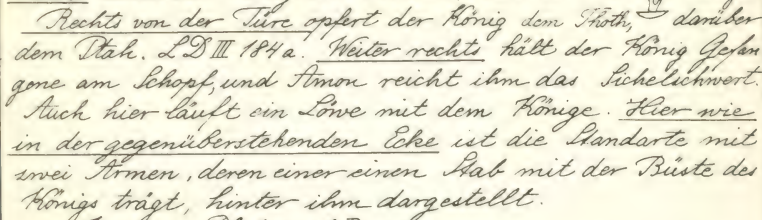 Rechts von der Türe opfert der König dem Thoth, darüber
dem Ptah. L D III 184 a. Weiter rechts hält der König Gefan
gene am Schopf, und Amon reicht ihm das Sichelschwert.
Auch hier läuft ein Löwe mit dem Könige. Hier wie
in der gegenüberstehenden Ecke ist die Standarte mit
zwei Armen, deren einer einen Stab mit der Büste des
Königs trägt, hinter ihm dargestellt.